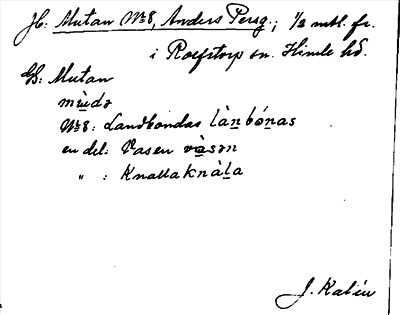 Jb: Mutan No 8, Anders Persg.; 1/2 mtl. fr.
i Rofstorp sn. Himle hd.
GB: Mutan
mùdə
No 8: Landbondas làn̠bón̠as
en del: Vasen vàsən
" : Knalla knàl̠a
J. Kalén